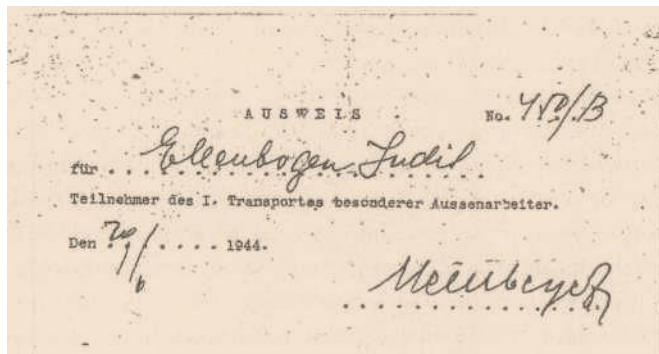 AUSWEIS No. 450/B
für Ellenbogen Judit
Teilnehmer des I. Transportes besonderer Aussenarbeiter.
Den 1944.